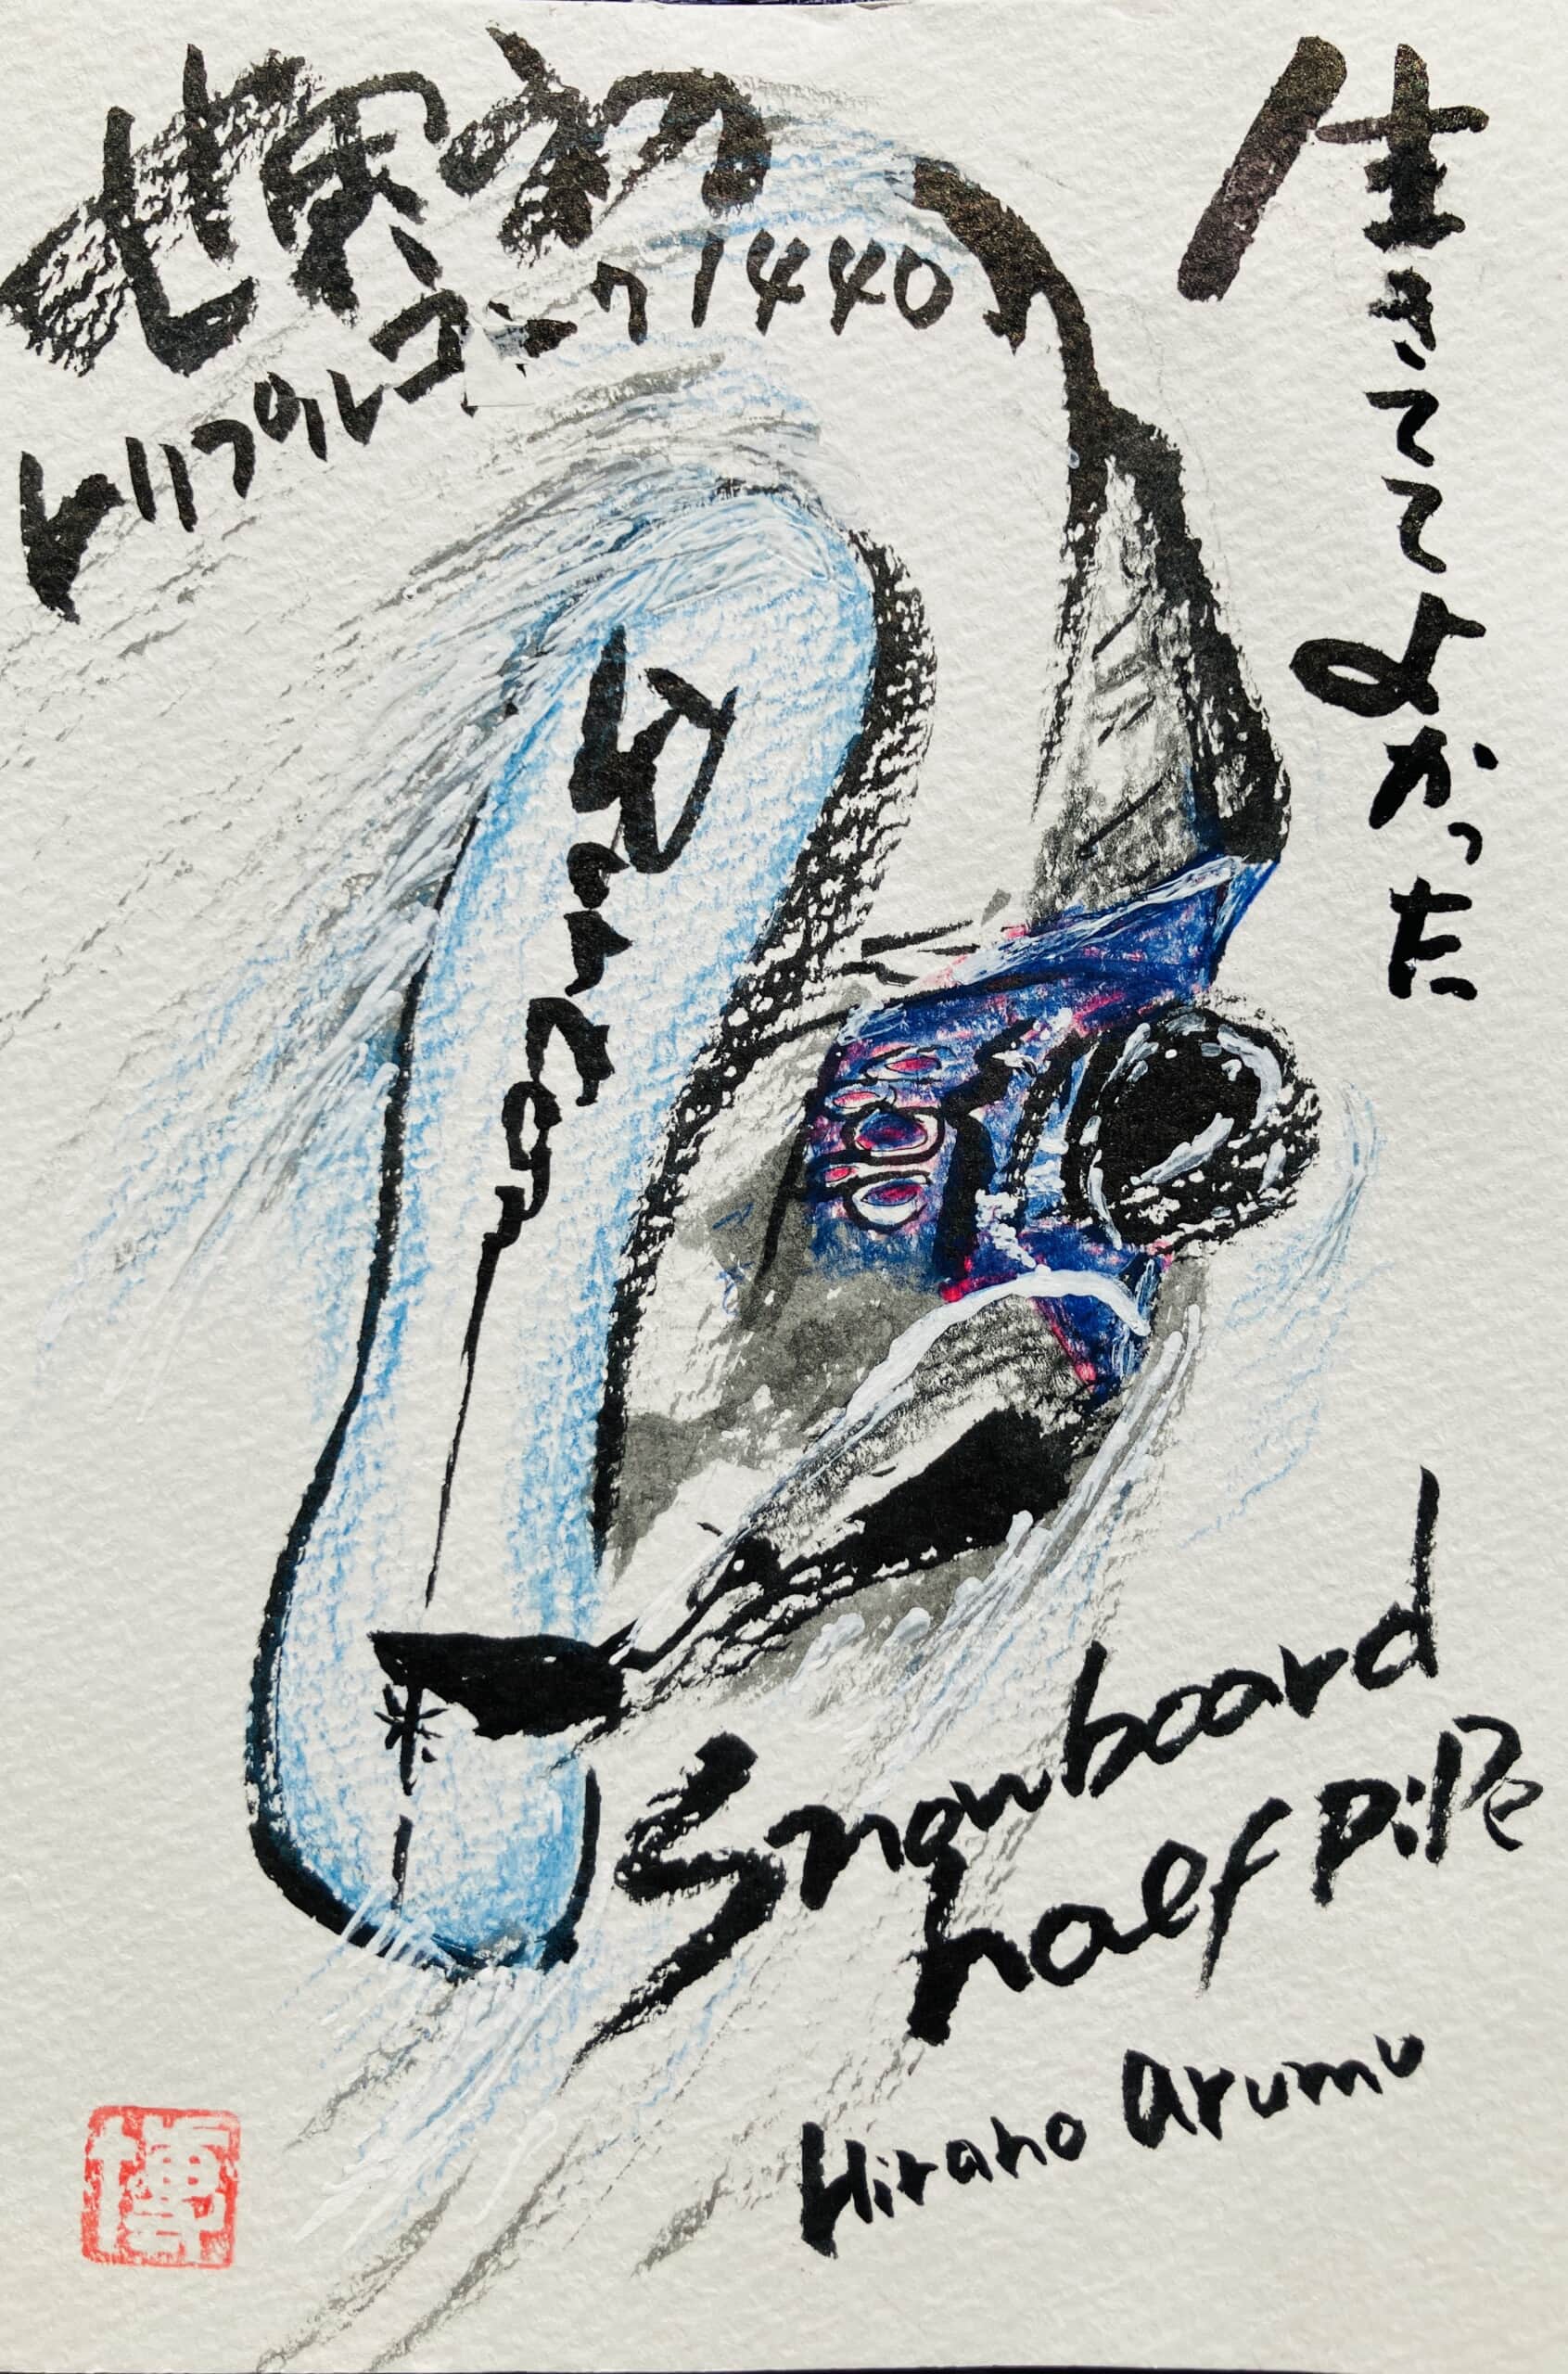 生きててよかった
世界初
トリプルコーク1440
Burton
Snowboard
half PiPe
Hirano arumu
博